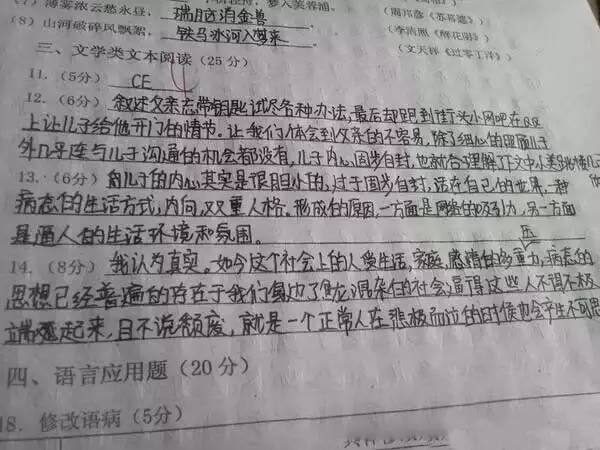 (7) 薄雾浓云愁永昼，瑞脑消金兽 （李清照《醉花阴》）
(8) 山河破碎风飘絮， 铁马冰河入梦来 （文天祥《过零丁洋》）
三、文学类文本阅读（25分）
11.（5分） CE
12.（6分） 叙述父亲忘带钥匙试尽各种办法，最后却跑到街头小网吧在QQ
上让儿子给他开门的情节。让我们体会到父亲的不容易，除了细心的照顾儿子
外几乎连与儿子沟通的机会都没有，儿子内心固步自封，也就
13.（6分） 儿子的内心其实是很胆小的，过于固步自封，活在自己的世界，一种
病态的生活方式，内向，双重人格。形成的原因，一方面是网络的吸引力，另一方面
是逼人的生活环境和氛围。
14.（8分） 我认为真实。如今这个社会上的人受生活，家庭，感情的多重压力，病态的
思想已经普遍的存在于我们身边了，鱼龙混杂的社会逼得这些人不得不极
端起来，且不说颓废，就是一个正常人在悲极而泣的时候也会产生不可思
四、语言应用题（20分）
18. 修改语病（5分）